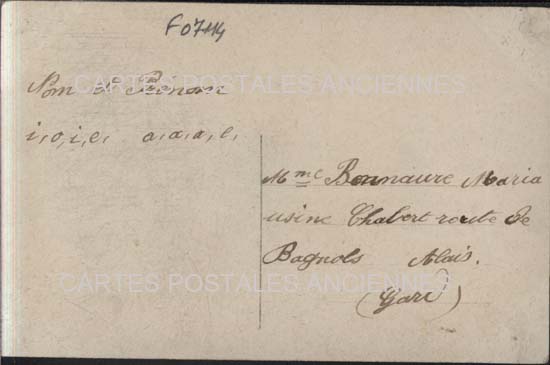 F07114
CARTES POSTALES ANCIENNES
Nom et Prénom
i, o, i, e, a, a, a, e,
Mme Bonnaure Maria
usine Chabert route de
Bagnols Alais.
(Gard)
CARTES POSTALES ANCIENNES